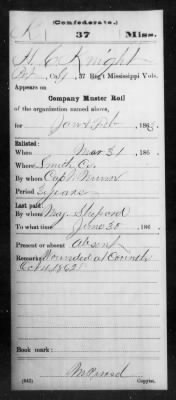 (Confederate.)
K 37 Miss.
H. C. Knight
Pvt, Co. G, 37 Reg't Mississippi Vols.
Appears on
Company Muster Roll
of the organization named above,
for Jan & Feb, 1863.
Enlisted:
When Mar 31, 186 .
Where Smith Co.
By whom Capt.
Period 3 years
Last paid:
By whom Maj. Shepard
To what time June 30, 186 .
Present or absent Absent
Remarks: Wounded at Corinth
Oct 4 1862
Book mark:
(642) Copyist.